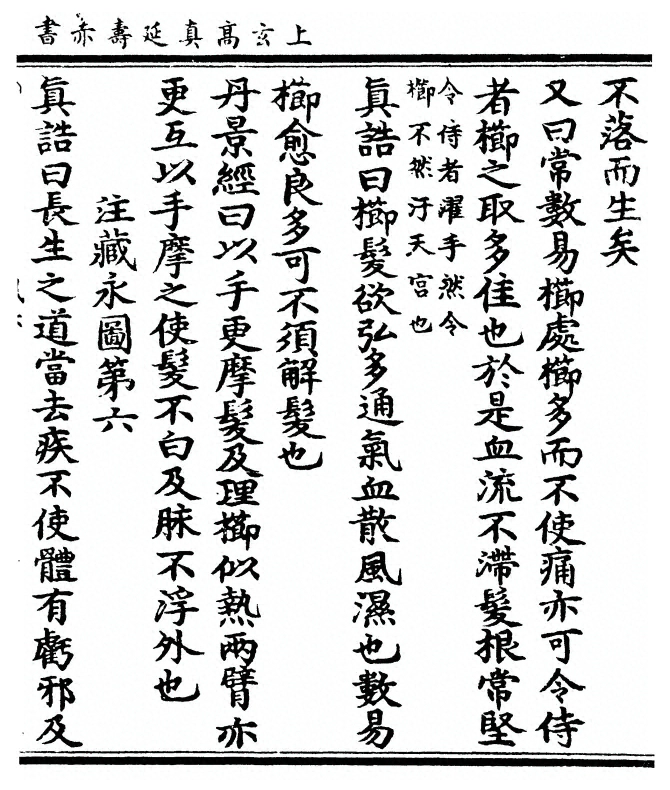 上玄髙真延壽赤書
不落而生矣
又曰常數易櫛處櫛多而不使痛亦可令侍
者櫛之取多佳也於是血流不滯髮根常堅
令侍者濯手然令
櫛不然汙天宮也
眞誥曰櫛髮欲弘多通氣血散風濕也數易
櫛愈良多可不須解髮也
丹景經曰以手更摩髮及理櫛似熱兩臂亦
更互以手摩之使髮不白及脉不浮外也
注藏永圖第六
眞誥曰長生之道當去疾不使體有虧邪及